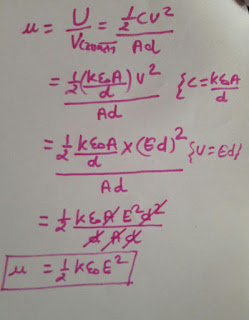 u = U/V(Volume) = ½CV²/Ad
= ½(kε₀A/d)V²/Ad {C = kε₀A/d
= ½ kε₀A/d × (Ed)²/Ad {V = Ed}
= ½ kε₀A E²d²/d A d
u = ½ kε₀E²